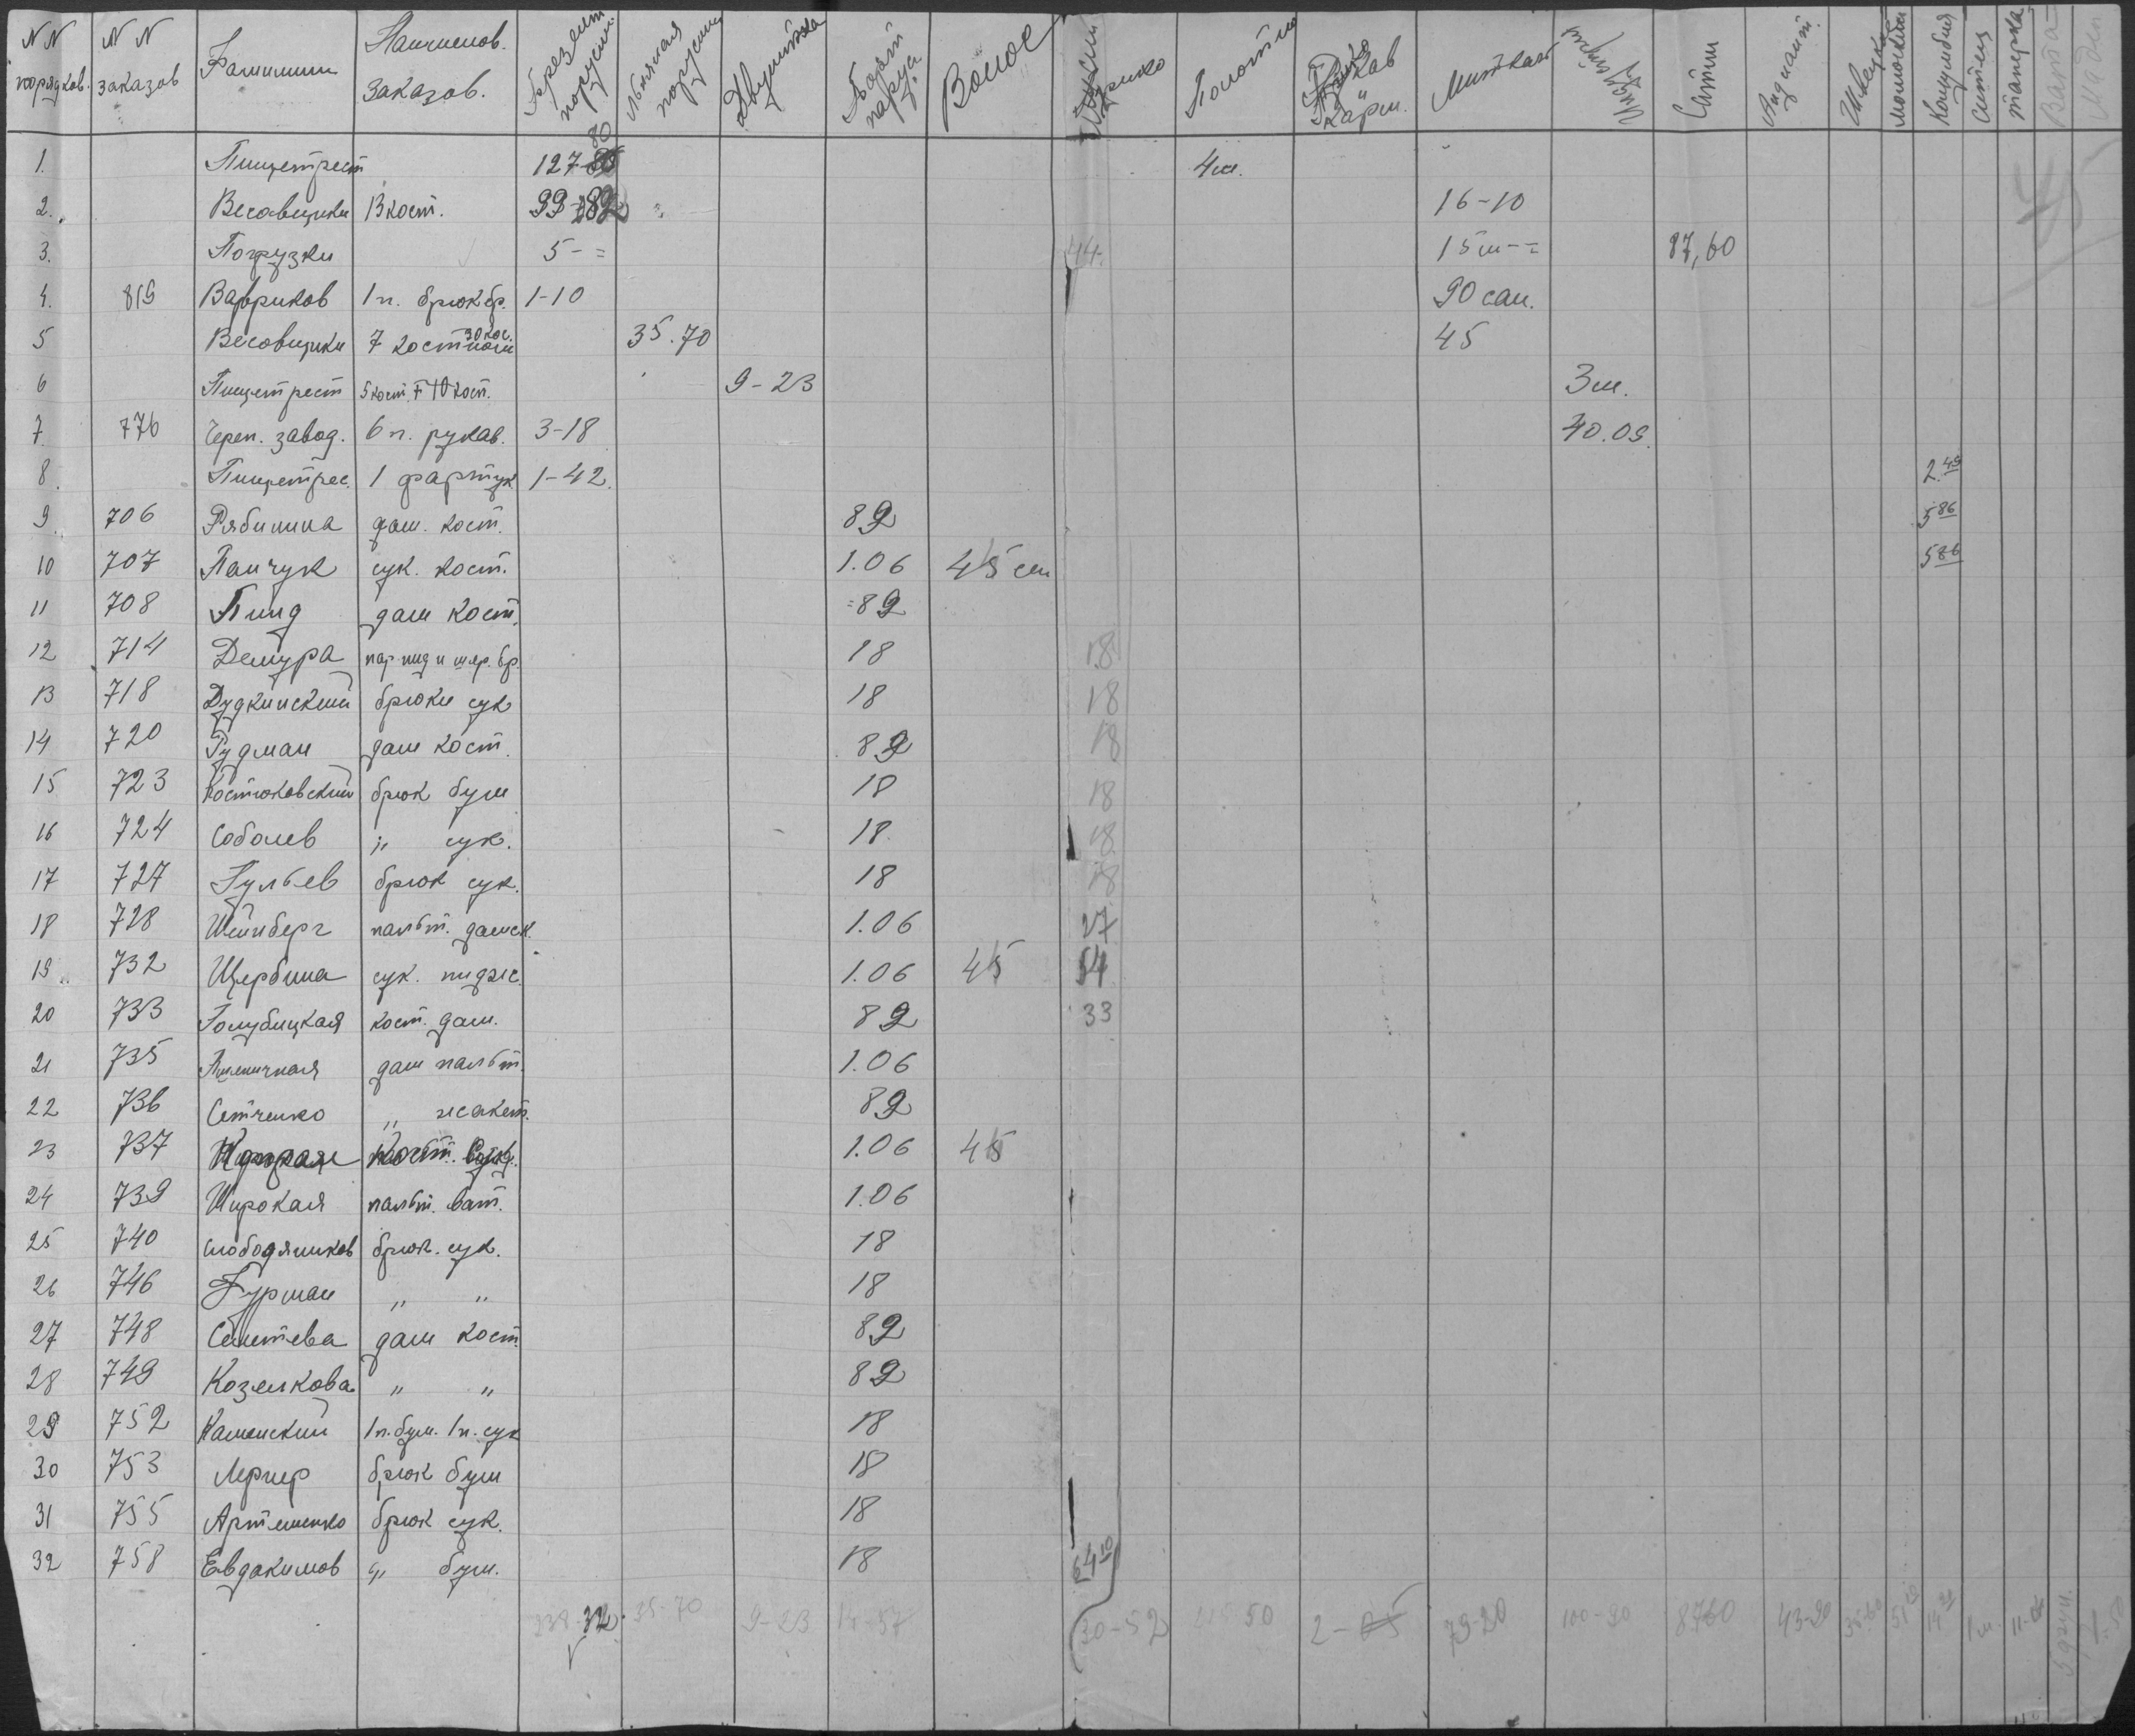 NN порядков. NN заказов Фамилии Наименов. заказов. Брезент парусин. Льняная парусин Двунитка Борт парус. Волос Трико Полотно Рукав карт. Миткаль Сатин Радиант. Швецк. молескин Колумбия Ситец Вата
1. Пищетрест 127-80 4м.
2. Весовщики 13 кост. 99-82 16-10
3. Погрузки 5-= 44. 15м-= 87,60
4. 819 Вавриков 1 п. брюк бр. 1-10 90 сан.
5 Весовщики 7 кост 35.70 45
6 Пищетрест 5 кост. + 10 кост. 9-23 3м.
7. 776 Череп. завод. 6 п. рукав. 3-18 40.09.
8. Пищетрес. 1 фартук 1-42. 2.49
9. 706 Рябинина дам. кост. 82 5 86
10 707 Панчук сук. кост. 1.06 45 см 5 86
11 708 Пинд дам кост. =82
12 714 Демура пар пид и шер. бр. 18 18
13 718 Дудкинский брюки сук 18 18
14 720 Рудман дам кост. 82 18
15 723 Костюковский брюк бум 18 18
16 724 Соболев " сук. 18 18
17 727 Гульев брюк сук. 18 18
18 728 Шейнберг пальт. дамск. 1.06 27
19.. 732 Щербина сук. пидж. 1.06 45 54
20 733 Голубицкая кост. дам. 82 33
21 735 Пшеничная дам пальт. 1.06
22 736 Сетченко " жакет. 82
23 737 кост. 1.06 45
24 739 Широкая пальт. ват. 1.06
25 740 Слободяников брюк. сук. 18
26 746 Гурман " " 18
27 748 Сентева дам кост. 82
28 749 Козелкова " " 82
29 752 Каменский 1п. бум. 1п. сук 18
30 753 Лернер брюк бум 18
31 755 Артеменко брюк сук. 18
32 758 Евдакимов " бум. 18 64 10
238-32. 35-70 9-23 14-57 30-52 50 2-05 79-20 100-90 8760 43-20 1м.